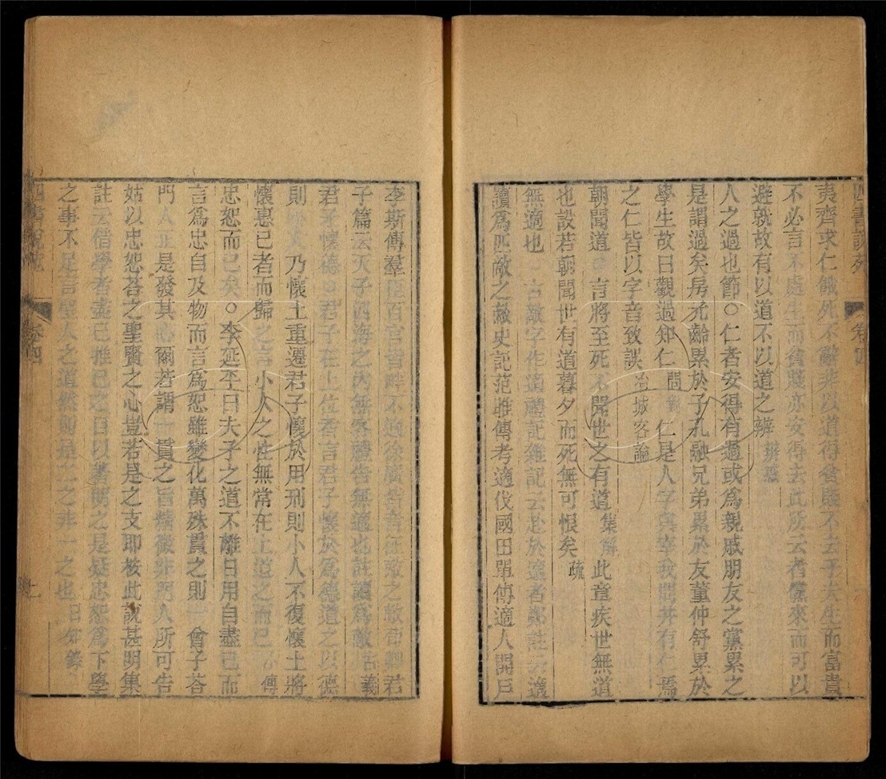 夷齊求仁餓死不辭未以道得貧賤不去乎夫生而富貴
不必言不處生而貧賤亦安得去此所云者儻來而可以
避就故有以道不以道之辨 辨惑
人之過也節○仁者安得有過或為親戚朋友之黨累之
是謂過矣房元齡累於子孔融兄弟累於友董仲舒累於
學生故曰觀過知仁 問 仁是人字與宰我問井有仁焉
之仁皆以字音致誤 冶城客論
朝聞道 言將至死不聞世之有道 集解 此章疾世無道
也設若朝聞世有道暮夕而死無可恨矣 疏
無適也 言敵字作適禮記雜記云赴於適者鄭註云適
讀為匹敵之敵史記范雎傳考適伐國田單傳適人開戶
李斯傳羣臣百官皆畔不適徐廣皆音征敵之敵荀卿君
子篇云天子四海之內無客禮告無適也註讀為敵 活義
君子懷德○君子在上位者言君子懷於為德道之以德
則 乃懷土重遷君子懷於用刑則小人不復懷土將
懷惠己者而歸之言小人之性無常在上道之而已 傳
忠恕而已矣○李延平曰夫子之道不離日用自盡己而
言為忠自及物而言為恕雖變化萬殊貫之則一曾子答
門人正是發其心爾若謂一貫之旨精微非門人所可告
姑以忠恕荅之聖賢之心豈若是之支耶按此說甚明集
註云借學者盡己推己之目以著明之是疑忠恕為下學
之事不足言聖人之道然則是仁之非一之也 日知錄
四書說苑
卷四
七